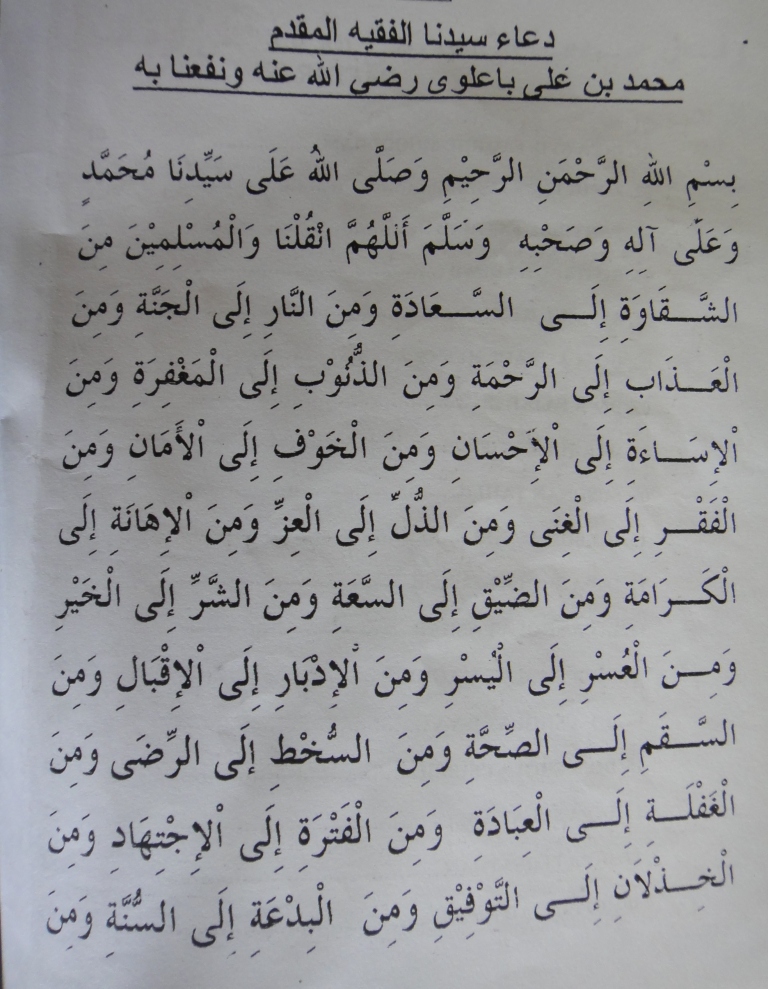 دعاء سيدنا الفقيه المقدم
محمد بن على باعلوى رضي الله عنه ونفعنا به
بِسْمِ اللهِ الرَّحْمَنِ الرَّحِيْمِ وَصَلَّى اللهُ عَلَى سَيِّدِنَا مُحَمَّدٍ
وَعَلَى آلِهِ وَصَحْبِهِ وَسَلَّمَ أَللَّهُمَّ انْقُلْنَا وَالْمُسْلِمِيْنَ مِنَ
الشَّـــقَاوَةِ إِلَـــى السَّـــعَادَةِ وَمِنَ النَّارِ إِلَى الْجَنَّةِ وَمِنَ
الْعَـــذَابِ إِلَى الرَّحْمَةِ وَمِنَ الذُّنُوْبِ إِلَى الْمَغْفِرَةِ وَمِنَ
اْلإِسَـــاءَةِ إِلَى اْلإِحْسَانِ وَمِنَ الْخَوْفِ إِلَى اْلأَمَانِ وَمِنَ
الْفَقْـــرِ إِلَى الْغِنَى وَمِنَ الذُّلِّ إِلَى الْعِزِّ وَمِنَ اْلإِهَانَةِ إِلَى
الْكَـــرَامَةِ وَمِنَ الضِّيْقِ إِلَى السَّعَةِ وَمِنَ الشَّرِّ إِلَى الْخَيْرِ
وَمِـــنَ الْعُسْرِ إِلَى الْيُسْرِ وَمِنَ اْلإِدْبَارِ إِلَى اْلإِقْبَالِ وَمِنَ
السَّـــقَمِ إِلَـــى الصِّحَّةِ وَمِنَ السُّخْطِ إِلَى الرِّضَى وَمِنَ
الْغَفْلَـــةِ إِلَـــى الْعِبَادَةِ وَمِنَ الْفَتْرَةِ إِلَى اْلإِجْتِهَادِ وَمِنَ
الْخِـــذْلاَنِ إِلَـــى التَّوْفِيْقِ وَمِنَ الْبِدْعَةِ إِلَى السُّنَّةِ وَمِنَ